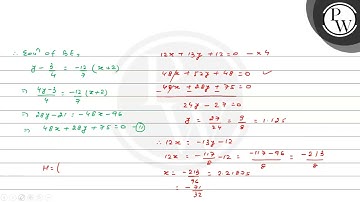 ∴ Eqnⁿ of BE,
y - 3/4 = -12/7 (x+2)
⇒ 4y-3/4 = -12/7 (x+2)
⇒ 28y-21 = -48x-96
⇒ 48x+28y+75=0 -(ii)
H=(
12x+13y+12=0 -×4
48x+52y+48=0 ✓
-48x±28y±75=0
24y-27=0
y = 27/24 = 9/8 = 1.125
∴ 12x = -13y-12
12x = -117/8 -12 = -117-96/8 = -213/8
x = -213/96 = 2.21875
= -71/32
PW